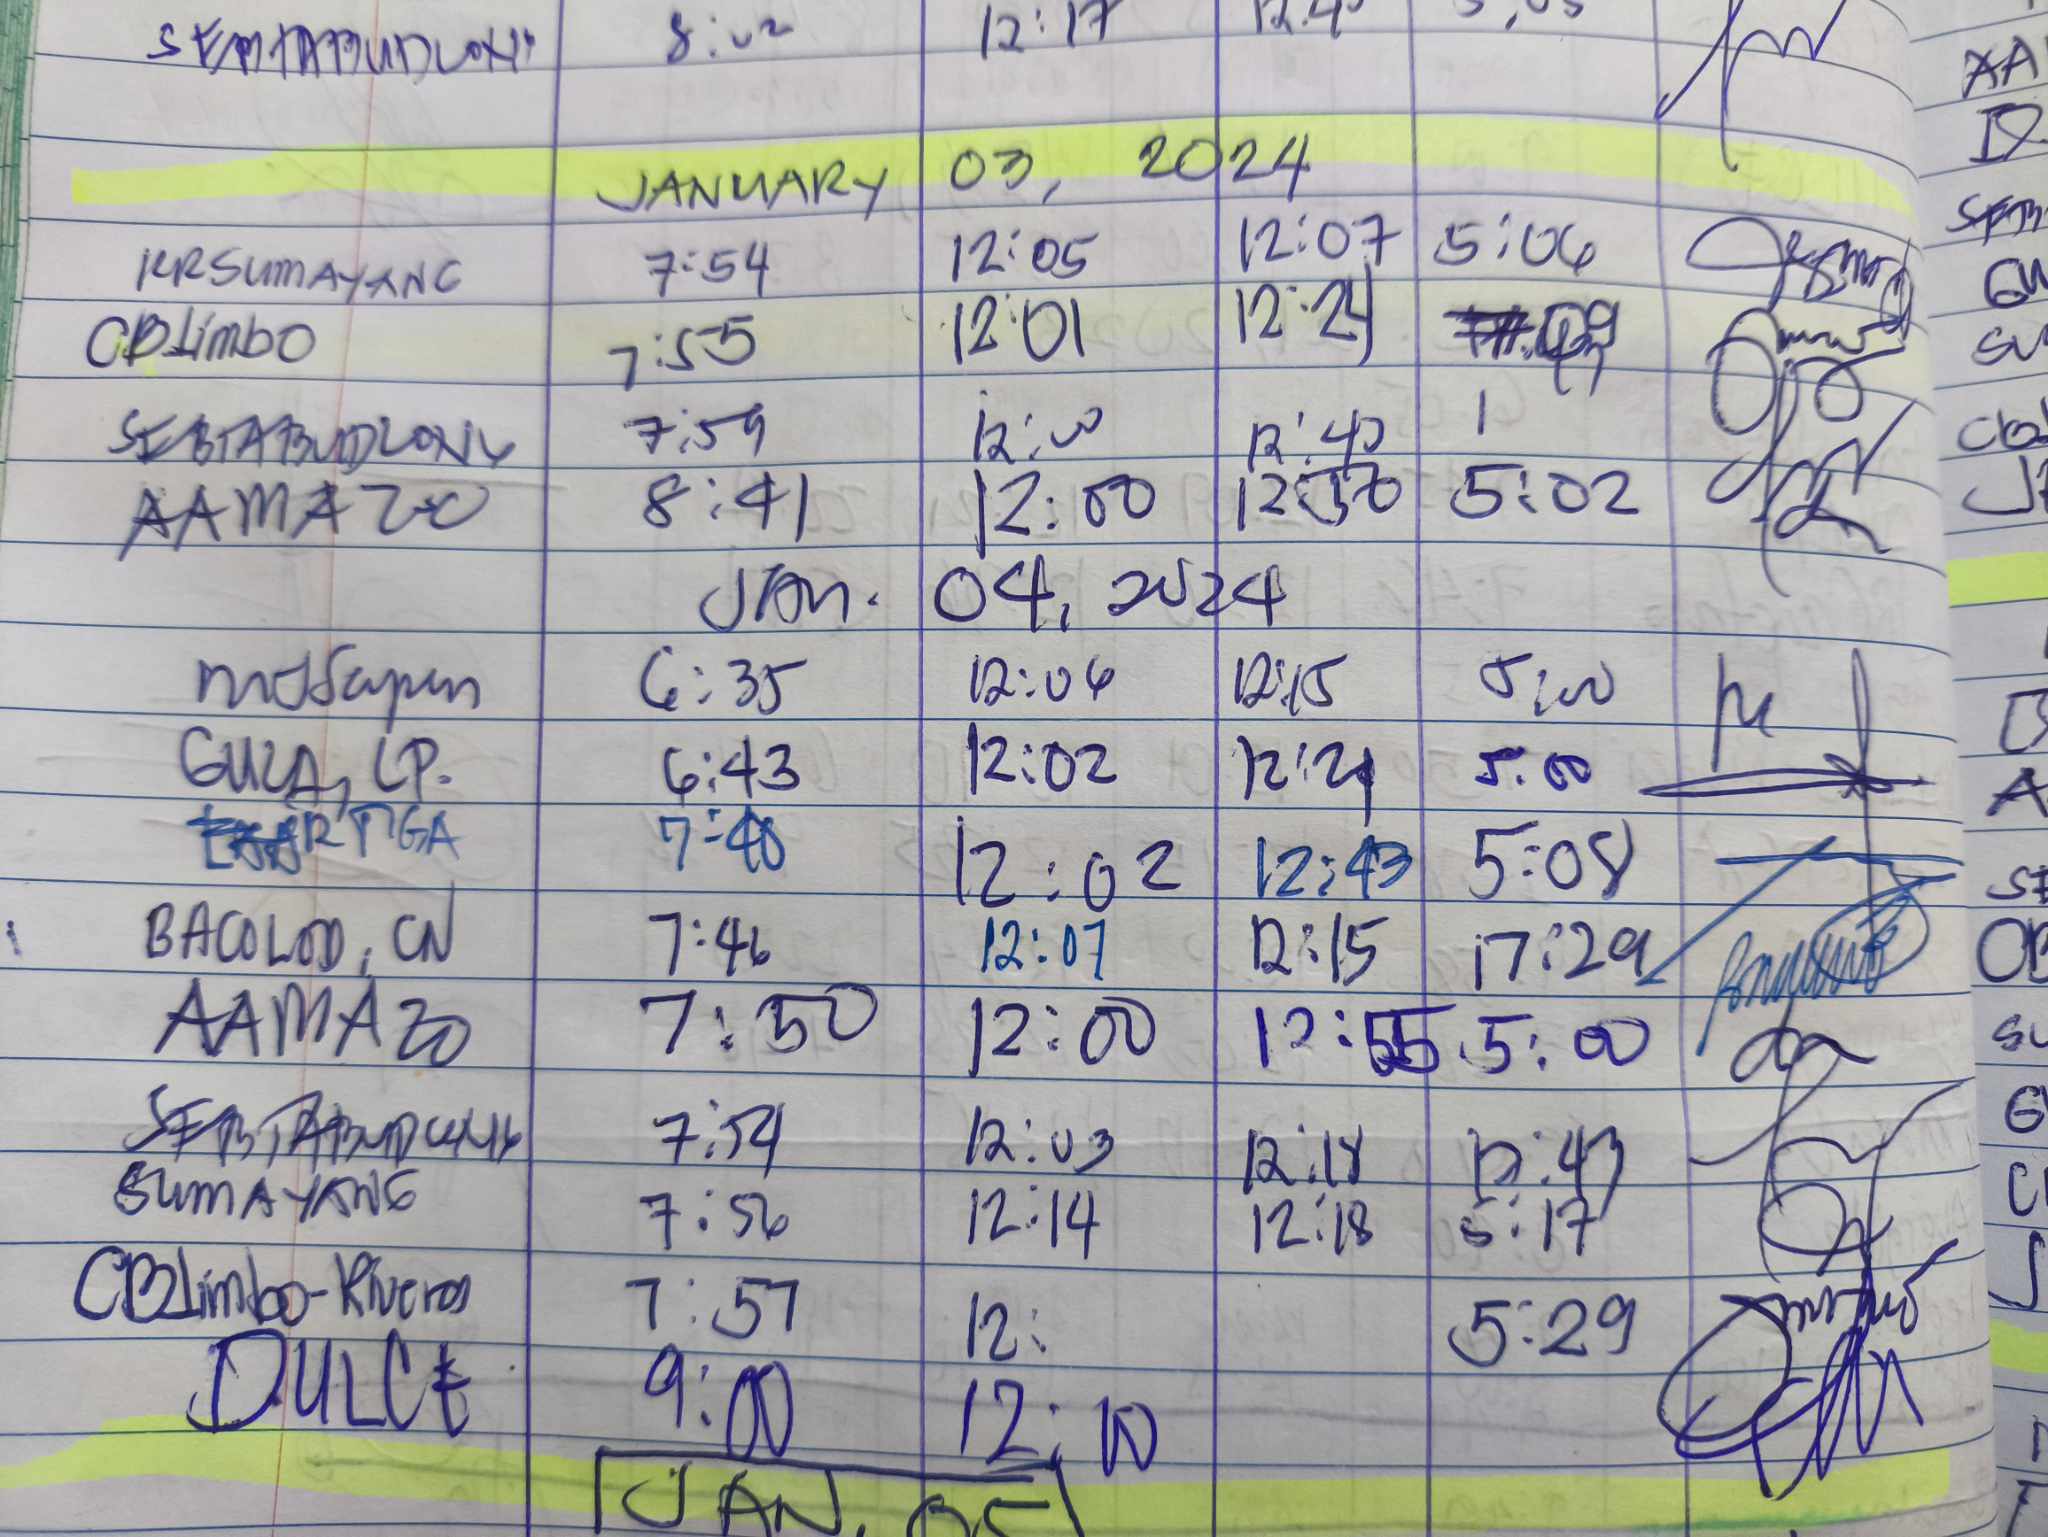 8:02 12:17
AA
JANUARY 03, 2024
RRSUMAYANG 7:54 12:05 12:07 5:06
CBLimbo 7:55 12:01 12:24
SEBTABUDLONG 7:59 12:00 12:40
AAMAZO 8:41 12:00 12:50 5:02
JAN. 04, 2024
6:35 12:06 12:15 5:00
GULA, LP. 6:43 12:02 12:21 5:00
ARTIGA 7:40 12:02 12:43 5:08
BACOLOD, CN 7:46 12:07 12:15 17:29
AAMAZO 7:50 12:00 12:55 5:00
SEBTABUDLONG 7:54 12:03 12:18
SUMAYANG 7:56 12:14 12:18 5:17
CBLimbo-Riveros 7:57 12: 5:29
DULCE 9:00 12:10
JAN. 05